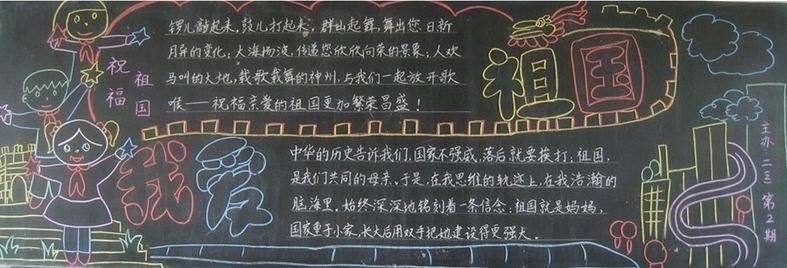 祝福
祖国
锣儿敲起来,鼓儿打起来,群山起舞,舞出您日新
月异的变化;大海扬波,传递您欣欣向荣的景象;人欢
马叫的大地,载歌载舞的神州,与我们一起放开歌
喉——祝福亲爱的祖国更加繁荣昌盛!
祖国
我爱
中华的历史告诉我们,国家不强盛,落后就要挨打;祖国,
是我们共同的母亲,于是,在我思维的轨迹上,在我浩瀚的
脑海里,始终深深地铭刻着一条信念:祖国就是妈妈,
国家重于小家,长大后用双手把她建设得更强大。
主办 二三 第2期